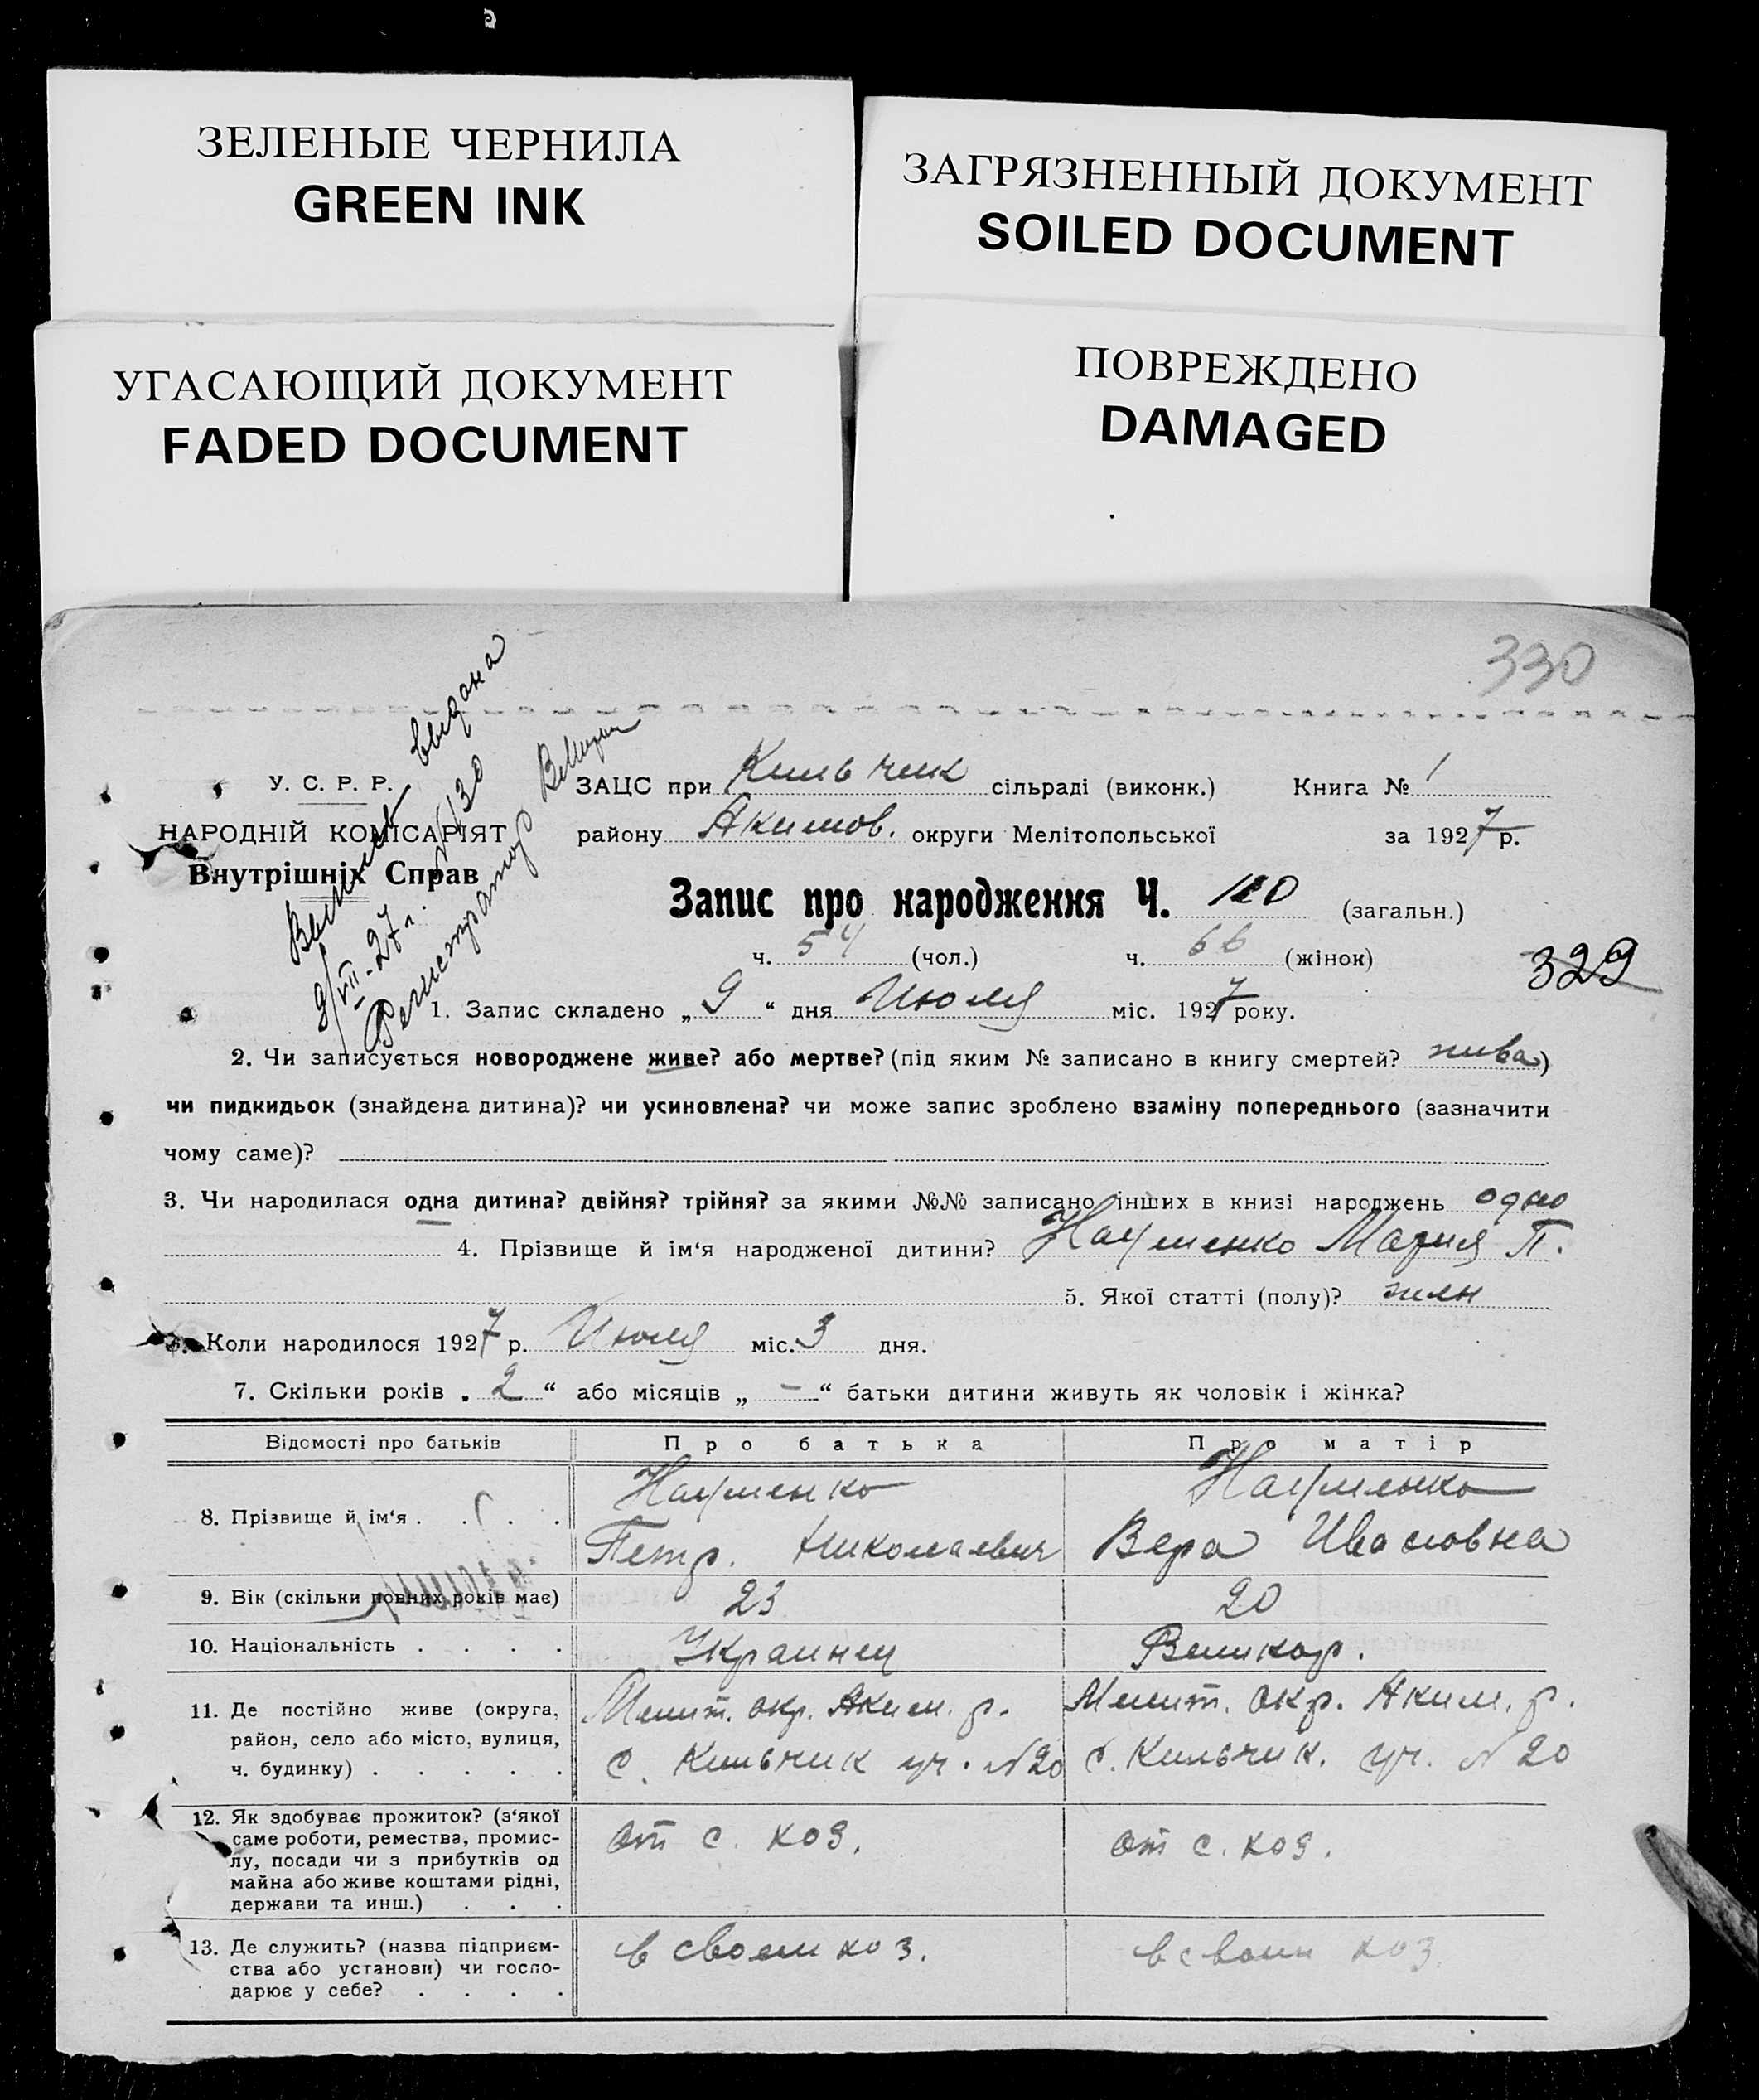 ЗЕЛЕНЫЕ ЧЕРНИЛА
GREEN INK
ЗАГРЯЗНЕННЫЙ ДОКУМЕНТ
SOILED DOCUMENT
УГАСАЮЩИЙ ДОКУМЕНТ
FADED DOCUMENT
ПОВРЕЖДЕНО
DAMAGED
330
выдана
9/VII-27 г. №130
Регистратор
У. С. Р. Р.
НАРОДНІЙ КОМІСАРІЯТ
Внутрішніх Справ
ЗАЦС при Кильчик сільраді (виконк.) Книга № 1
району Акимов. округи Мелітопольської за 1927 р.
Запис про народження Ч. 120 (загальн.)
ч. 54 (чол.) ч. 66 (жінок)
329
1. Запис складено „ 9 “ дня Июля міс. 1927 року.
2. Чи записується новороджене живе? або мертве? (під яким № записано в книгу смертей? жива)
чи пидкидьок (знайдена дитина)? чи усиновлена? чи може запис зроблено взаміну попереднього (зазначити
чому саме)?
3. Чи народилася одна дитина? двійня? трійня? за якими №№ записано інших в книзі народжень одно
4. Прізвище й ім‘я народженої дитини? Науменко Мария П.
5. Якої статті (полу)? жен
6. Коли народилося 1927 р. Июля міс. 3 дня.
7. Скільки років „ 2 “ або місяців „ — “ батьки дитини живуть як чоловік і жінка?
Відомості про батьків Про батька Про матір
8. Прізвище й ім‘я . . . . Науменко Петр. Николаевич Науменко Вера Ивановна
9. Вік (скільки повних років має) 23 20
10. Національність . . . . Украинец Великор.
11. Де постійно живе (округа, Мелит. окр. Аким. р. Мелит. окр. Аким. р.
район, село або місто, вулиця, с. Кильчик уч. №20 с. Кильчик. уч. №20
ч. будинку) . . . . .
12. Як здобуває прожиток? (з‘якої от с. хоз. от с. хоз.
саме роботи, ремества, промис-
лу, посади чи з прибутків од
майна або живе коштами рідні,
держави та инш.) . . .
13. Де служить? (назва підприєм- в своем хоз. в своем хоз.
ства або установи) чи госпо-
дарює у себе? . . . .